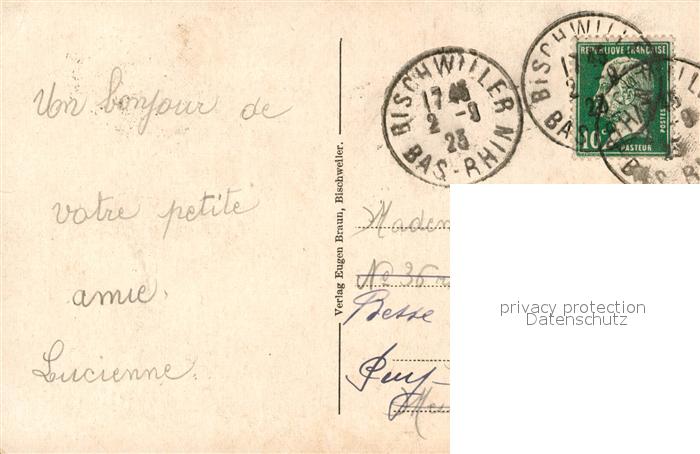 Un bonjour de
votre petite
amie.
Lucienne.
Verlag Eugen Braun, Bischweiler.
BISCHWILLER
17 45
2 -9
23
BAS-RHIN
BISCHWILLER
17
BAS-RHIN
REPUBLIQUE FRANÇAISE
POSTES
10c
PASTEUR
Madem
No 36
Besse
Puy-
privacy protection
Datenschutz